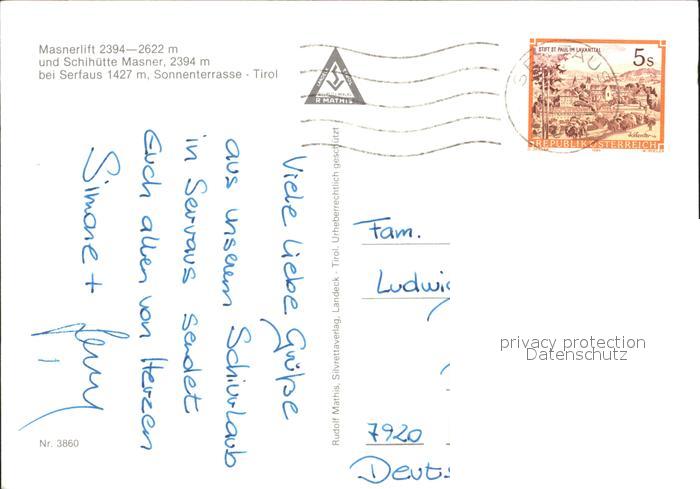 Masnerlift 2394—2622 m
und Schihütte Masner, 2394 m
bei Serfaus 1427 m, Sonnenterrasse - Tirol
R MATHIS
STIFT ST. PAUL IM LAVANTTAL
5 s
REPUBLIK ÖSTERREICH
Viele liebe Grüße
aus unserem Schiurlaub
in Servaus sendet
Euch allen von Herzen
Simone +
Rudolf Mathis, Silvrettaverlag, Landeck - Tirol, Urheberrechtlich geschützt
Fam.
Ludwig
7920
Deuts
privacy protection
Datenschutz
Nr. 3860